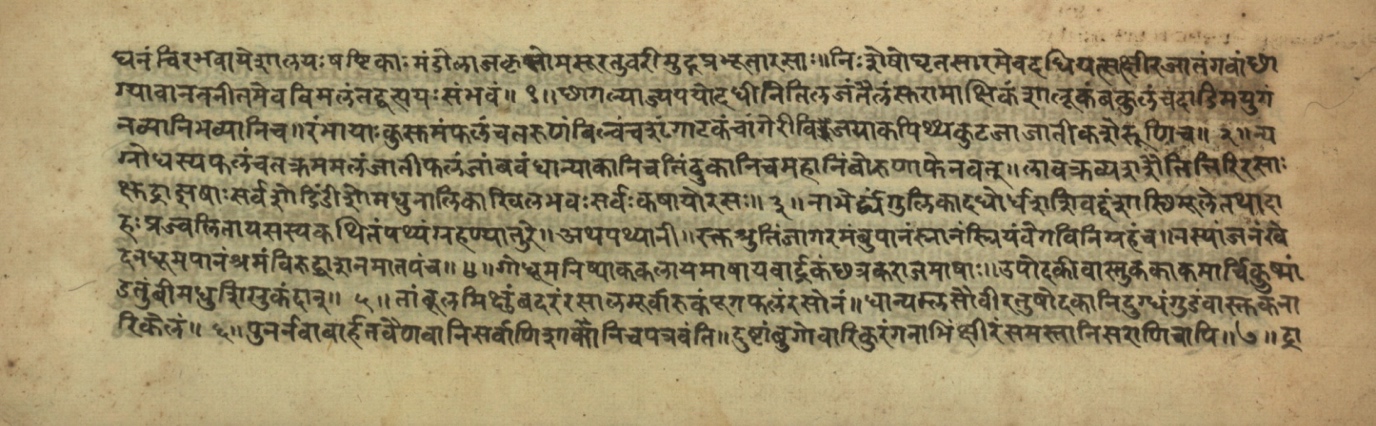 घनं चिरभवामेशालयः षष्टिकाः मंडोलाजकृतोमसूरतुवरीमुद्गप्रभूतारसाः॥ निःशेषोघृतसारमेवदधियत्सक्षीरजातंगवांछा
ग्यावानवनीतमेवविमलंतद्रूत्पयःसंभवं॥ १॥ छागल्याज्यपयोदधीनितिलजंतैलंसुरामाक्षिकंशालूकंबकुलंचदाडिमयुगं
नव्यानिभव्यानिच॥ रंभायाःकुसुमंफलंचतरुणंबिल्वंचशृंगाटकंचांगेरीविजयाकपिथ्थकुटजाजाजीकशेरूणिच॥ २॥ न्य
ग्रोधस्यफलंचतक्रममलंजातीफलंजांबवंधान्याकानिचतिंदुकानिचमहानिंबोरुणाफेनवत्॥ लावक्रव्यशशैततित्तिरिरसाः
क्षुद्राझषाःसर्वशोडिंडीशोमधुनालिकाखिलभवःसर्वःकषायोरसः॥ ३॥ नाभेर्द्व्यंगुलिकादधोर्धशशिवद्वंशास्थिमूलेतथादा
हःप्रज्वलितायसस्यकथितंपथ्यंग्रहण्यातुरे॥ अथपथ्यानी॥ रक्तश्रुतिंजागरमंबुपानंस्नानंस्त्रियंवेगविनिग्रहंच॥ नस्यांजनंस्वे
दनधूमपानंश्रमंविरुद्धाशनमातपंच॥ ४॥ गोधूमनिष्पाककलायमाषायवार्द्रकंछत्रकराजमाषाः॥ उपोदकीवास्तुककाकमाचिकुष्मां
डतुंबीमधुशिग्रुकंदान्॥ ५॥ तांबूलमिक्षुंबदरंरसालमूर्वारुकंपूगफलंरसोनं॥ धान्यम्लसौवीरतुषोदकानिदुग्धंगुडंवास्तुकना
रिकेलं॥ ६॥ पुनर्नवाबार्हतवैणवानिसर्वाणिशाकानिचपत्रवंति॥ दुष्टांबुगोवारिकुरंगनाभिंक्षीरंसमस्तानिसराणिचापि॥ ७॥ द्रा